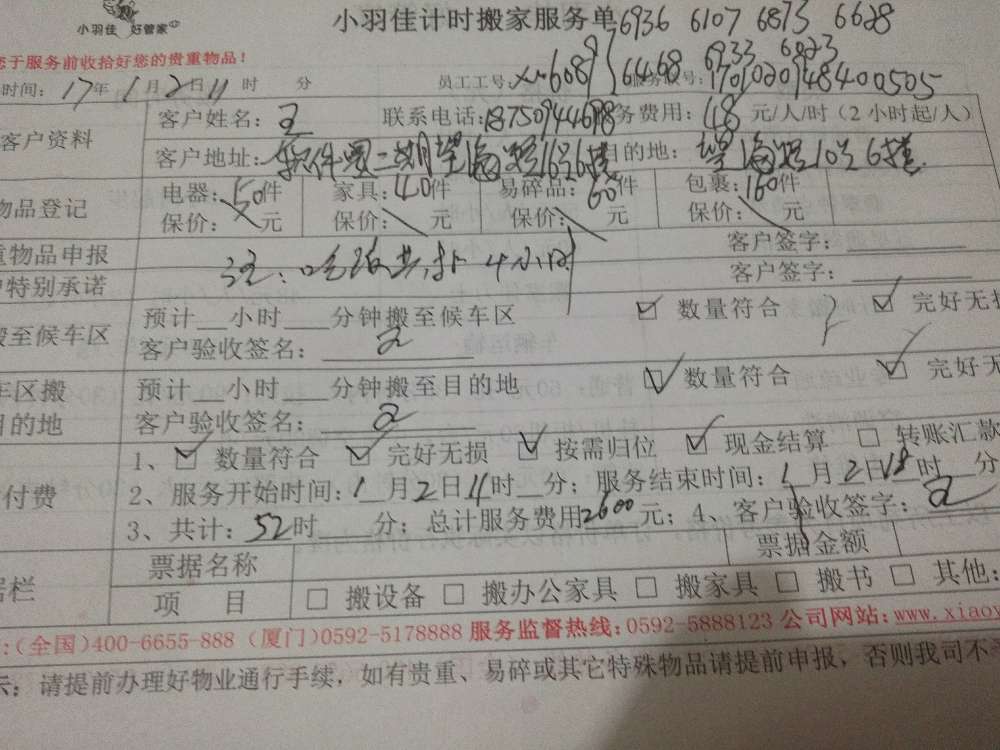 小羽佳 好管家
小羽佳计时搬家服务单 6936 6107 6873 6628
您于服务前收拾好您的贵重物品!
时间: 17年1月2日11时 分 员工工号: 6087 6468 6933 6823
号: 170102094840505
客户资料 客户姓名: 联系电话: 务费用: 48 元/人/时(2小时起/人)
客户地址: 软件园二期望海路16号6楼 目的地: 望海路10号6楼
物品登记 电器: 50件 家具: 40件 易碎品: 60件 包裹: 160件
保价: 元 保价: 元 保价: 元 保价: 元
重物品申报 客户签字:
特别承诺 注: 吃饭共扣4小时 客户签字:
搬至候车区 预计 小时 分钟搬至候车区 ☑ 数量符合 ☑ 完好无损
客户验收签名:
车区搬 预计 小时 分钟搬至目的地 ☑ 数量符合 ☑ 完好无
目的地 客户验收签名:
1、☑ 数量符合 ☑ 完好无损 ☑ 按需归位 ☑ 现金结算 □ 转账汇款
付费 2、服务开始时间: 1月2日11时 分; 服务结束时间: 1月2日18时 分
3、共计: 52时 分; 总计服务费用2600元; 4、客户验收签字:
据栏 票据名称 票据金额
项 目 □ 搬设备 □ 搬办公家具 □ 搬家具 □ 搬书 □ 其他:
:(全国)400-6655-888 (厦门)0592-5178888 服务监督热线: 0592-5888123 公司网站: www.xiaoy
示: 请提前办理好物业通行手续, 如有贵重、易碎或其它特殊物品请提前申报, 否则我司不